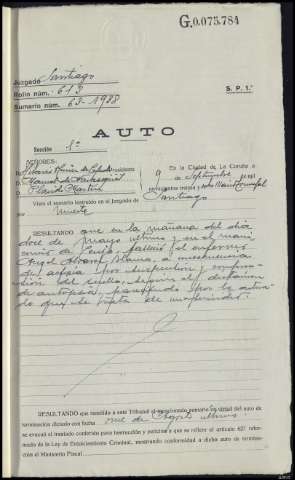 G.0.075.784
Juzgado Santiago
Rollo núm. 613
Sumario núm. 63-1938
S. P. 1.ª
AUTO
Sección 1ª
SEÑORES:
Presidente
En la Ciudad de La Coruña a
9 de Septiembre de mil
novecientos treinta y ocho
Visto el sumario instruído en el Juzgado de
Santiago
muerte
RESULTANDO que en la mañana del día
doce de mayo último y en el mani-
comio de Conjo, falleció el enfermo
Angel Alvarez Blanco, a consecuencia
de asfixia por suspensión y compre-
sión del cuello, según el dictamen
de autopsia,
RESULTANDO que remitido a este Tribunal el mencionado sumario en virtud del auto de
terminación dictado con fecha once de Agosto último
se evacuó el traslado conferido para instrucción y peticiones a que se refiere el artículo 627 refor-
mado de la Ley de Enjuiciamiento Criminal, mostrando conformidad a dicho auto de termina-
ción el Ministerio Fiscal.